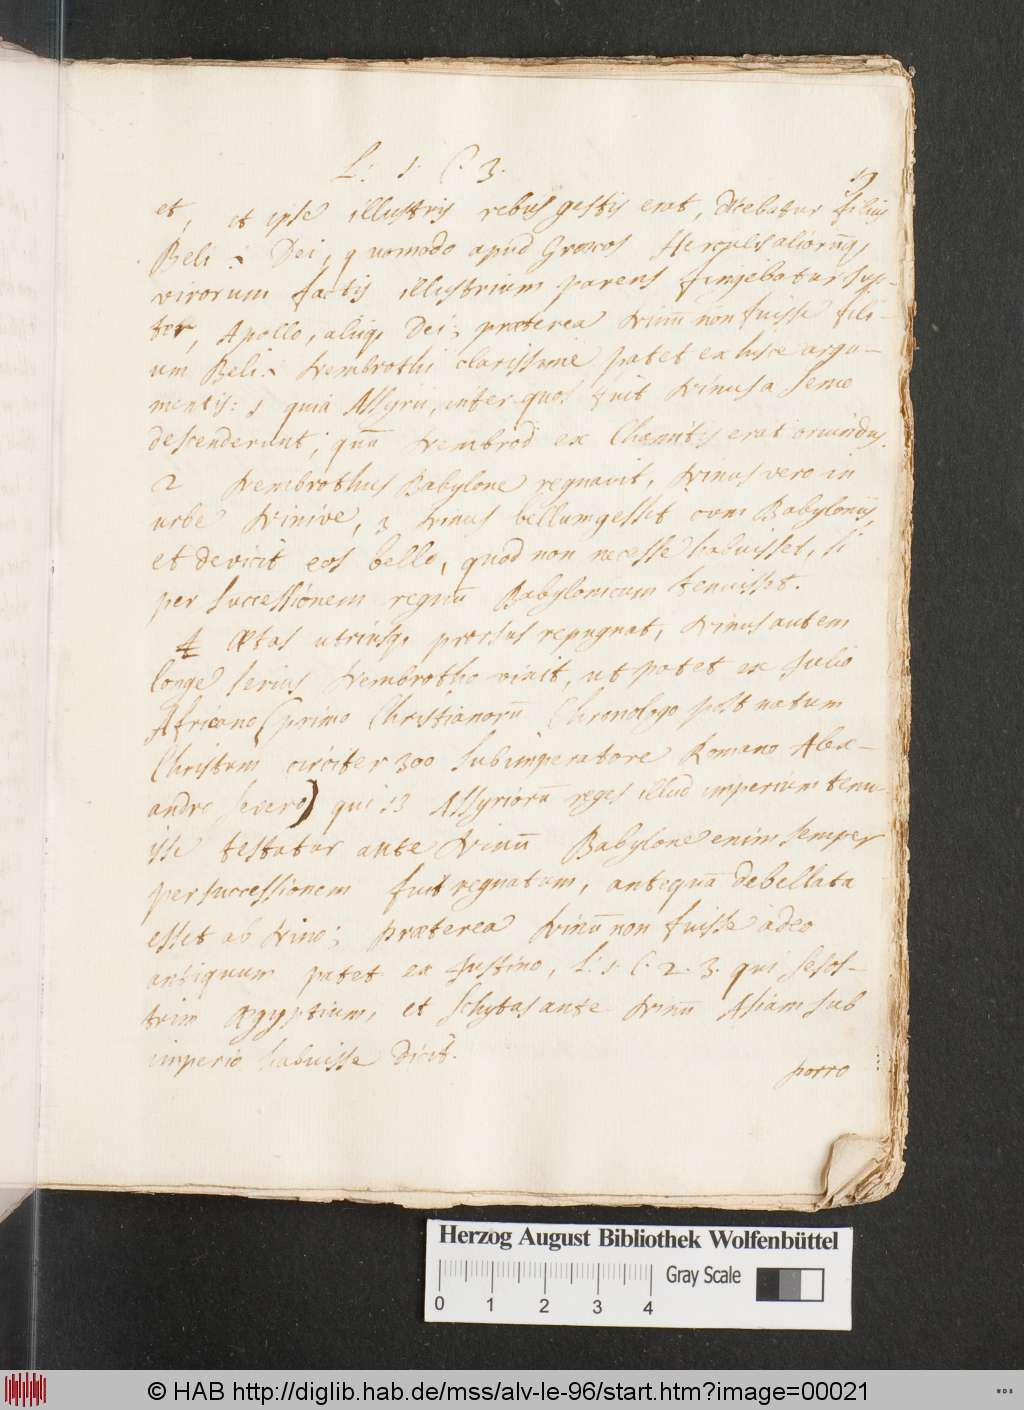 L: 1. C. 3.
et, et ipse illustris rebus gestis erat, dicebatur filius
Beli i. Dei, quomodo apud Græcos Herculis aliorumq,
virorum factis illustrium parens fingebatur Jup-
ter, Apollo, aliiq, Dei; præterea Ninū non fuisse fili-
um Beli i. Nembrothi clarissime patet ex hisce argu-
mentis: 1 quia Assyrii, inter quos fuit Ninus a Seme
descenderunt; quū Nembrod ex Chamitis erat oriundus.
2 Nembrothus Babylone regnavit, Ninus vero in
urbe Ninive, 3 Ninus bellum gessit cum Babyloniis,
et devicit eos bello, quod non necesse habuisset, si
per successionem regnū Babylonicum tenuisset.
4 Ætas utriusq, prorsus repugnat, Ninus autem
longe serius Nembrotho vixit, ut patet ex Julio
Africano (primo Christianorū Chronologo post natum
Christum circiter 300 sub imperatore Romano Alex-
andro Severo) qui 13 Assyriorū reges illud imperium tenu-
isse testatur ante Ninū Babylone enim semper
per successionem fuit regnatum, antequā debellata
esset ab Nino; præterea Ninū non fuisse adeo
antiquum patet ex Justino, L: 1. C. 2. 3. qui Sesos-
trim Ægyptium, et Schytas ante Ninū Asiam sub
imperio habuisse dicit.
porro
Herzog August Bibliothek Wolfenbüttel
Gray Scale
0 1 2 3 4
© HAB http://diglib.hab.de/mss/alv-le-96/start.htm?image=00021